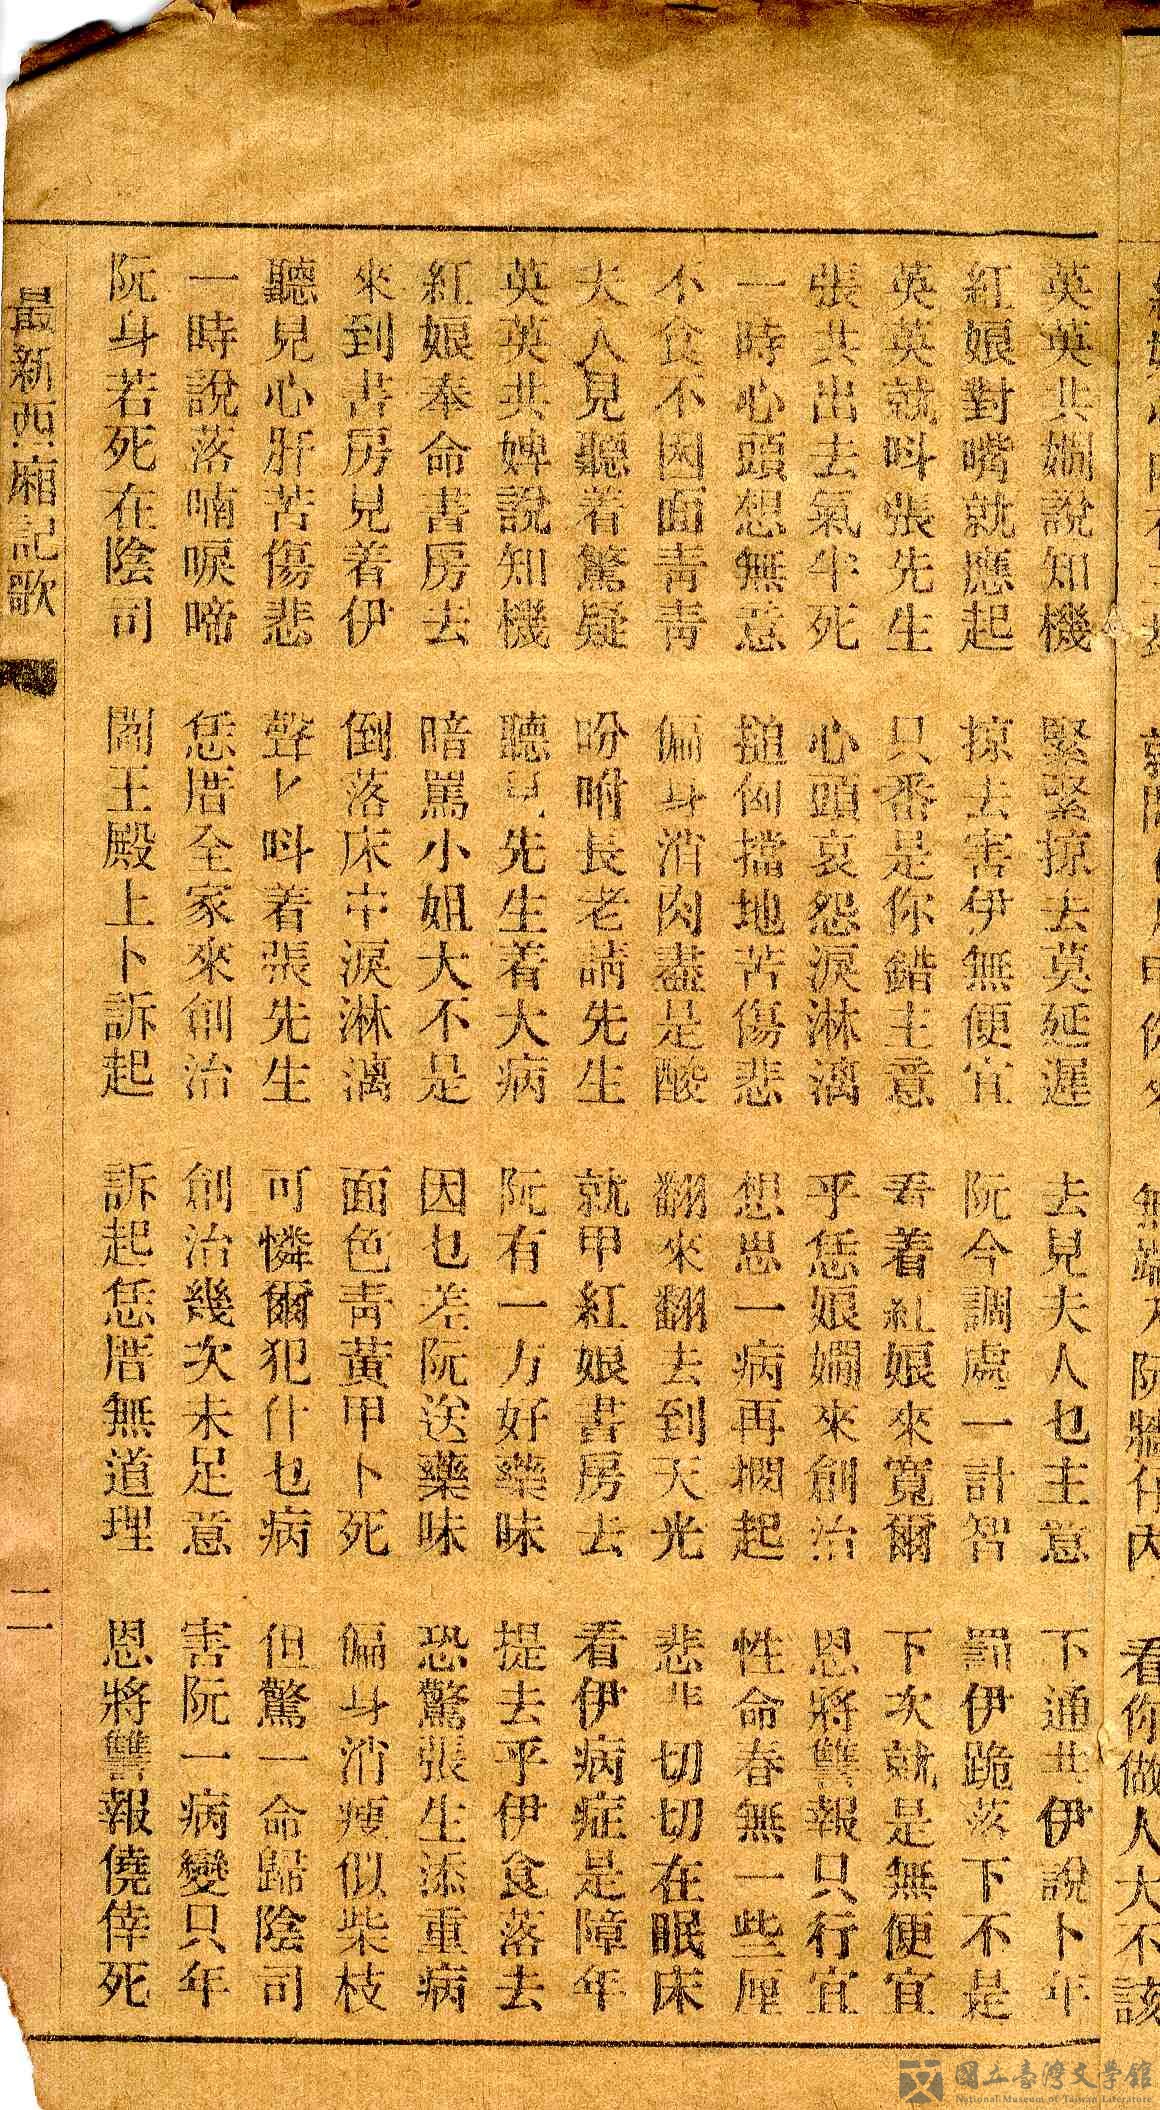 看你做人大不該
英英共嫺說知機　緊緊掠去莫延遲　去見夫人乜主意　下通共伊說卜年
紅娘對嘴就應起　掠去害伊無便宜　阮今調處一計智　罰伊跪落下不是
英英就呌張先生　只番是你錯主意　看着紅娘來寬爾　下次就是無便宜
張共出去氣半死　心頭哀怨淚淋漓　乎恁娘嫺來創治　恩將讐報只行宜
一時心頭想無意　搥胸擋地苦傷悲　想思一病再櫊起　性命春無一些厘
不食不因面靑靑　偏身消肉盡是酸　翻來翻去到天光　悲悲切切在眠床
夫人見聽着驚疑　吩咐長老請先生　就甲紅娘書房去　看伊病症是障年
英英共婢說知機　聽見先生着大病　阮有一方好藥味　提去乎伊食落去
紅娘奉命書房去　暗罵小姐大不是　因乜差阮送藥味　恐驚張生添重病
來到書房見着伊　倒落床中淚淋漓　面色靑黃甲卜死　偏身消瘦似柴枝
聽見心肝苦傷悲　聲〻呌着張先生　可憐爾犯什乜病　但驚一命歸陰司
一時說落喃唳啼　恁厝全家來創治　創治幾次未足意　害阮一病變只年
阮身若死在陰司　閻王殿上卜訴起　訴起恁厝無道理　恩將讐報僥倖死
最新西廂記歌　二
國立臺灣文學館
National Museum of Taiwan Literature